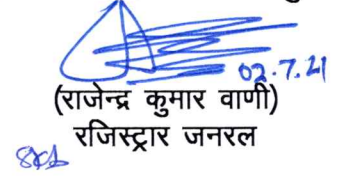 02.7.21
(राजेन्द्र कुमार वाणी)
रजिस्ट्रार जनरल